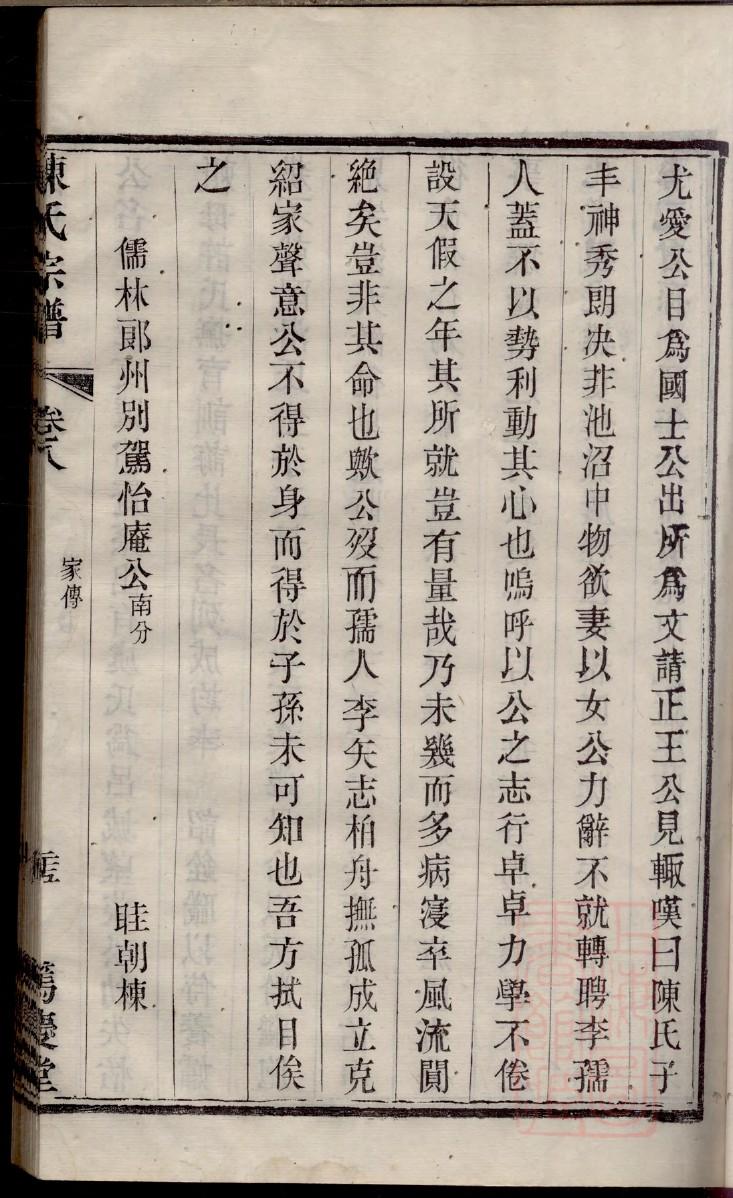 尤愛公目爲國士公出所爲文請正王公見輙嘆曰陳氏子
丰神秀朗决非池沼中物欲妻以女公力辭不就轉聘李孺
人蓋不以勢利動其心也嗚呼以公之志行卓卓力學不倦
設天假之年其所就豈有量哉乃未幾而多病寖卒風流聞
絶矣豈非其命也歟公歿而孺人李矢志柏舟撫孤成立克
紹家聲意公不得於身而得於子孫未可知也吾方拭目俟
之
儒林郞州別駕怡庵公南分 眭朝棟
家傳
陳氏宗譜 卷八 篤慶堂